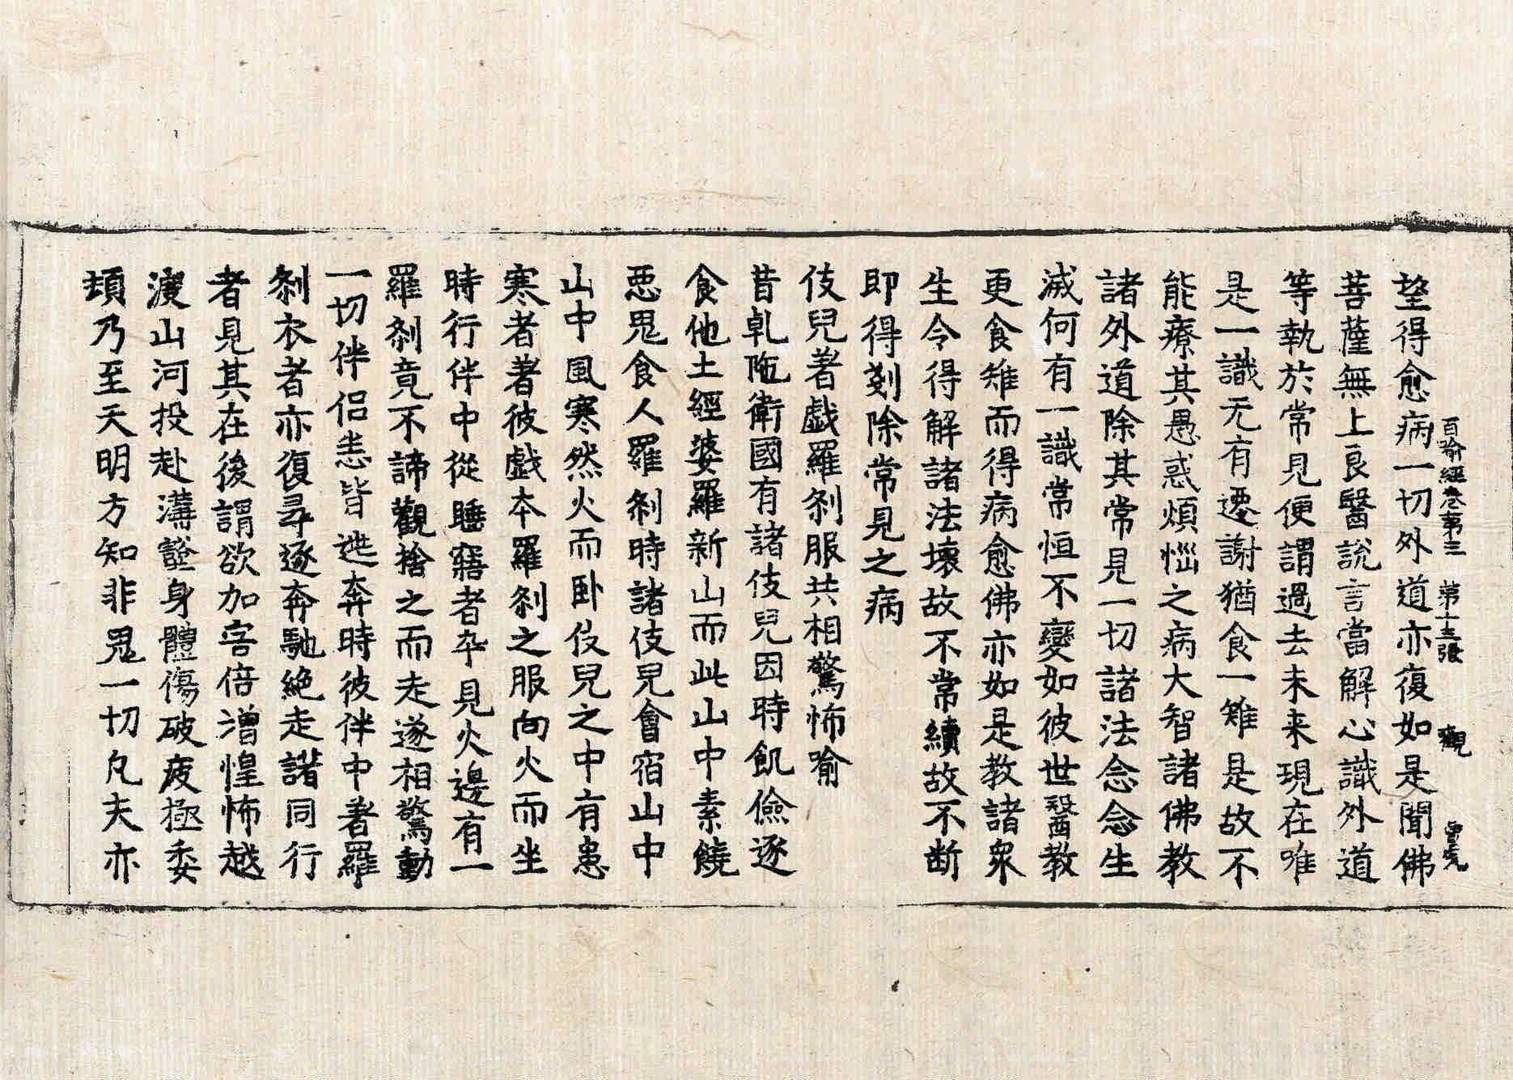 百喻經卷第三 第十三張 觀
望得愈病一切外道亦復如是聞佛
菩薩無上良醫說言當解心識外道
等執於常見便謂過去未来現在唯
是一識无有遷謝猶食一雉是故不
能療其愚惑煩惱之病大智諸佛教
諸外道除其常見一切諸法念念生
滅何有一識常恒不變如彼世醫教
更食雉而得病愈佛亦如是教諸衆
生令得解諸法壞故不常續故不断
即得剗除常見之病
伎兒著戲羅刹服共相驚怖喻
昔乹陁衛國有諸伎兒因時飢儉逐
食他土經婆羅新山而此山中素饒
惡鬼食人羅刹時諸伎兒會宿山中
山中風寒然火而卧伎兒之中有患
寒者著彼戲夲羅刹之服向火而坐
時行伴中從睡寤者卒見火邊有一
羅刹竟不諦觀捨之而走遂相驚動
一切伴侣悉皆迯奔時彼伴中著羅
刹衣者亦復尋逐奔馳絶走諸同行
者見其在後謂欲加害倍增惶怖越
渡山河投赴溝壑身體傷破疲極委
頓乃至天明方知非鬼一切凡夫亦